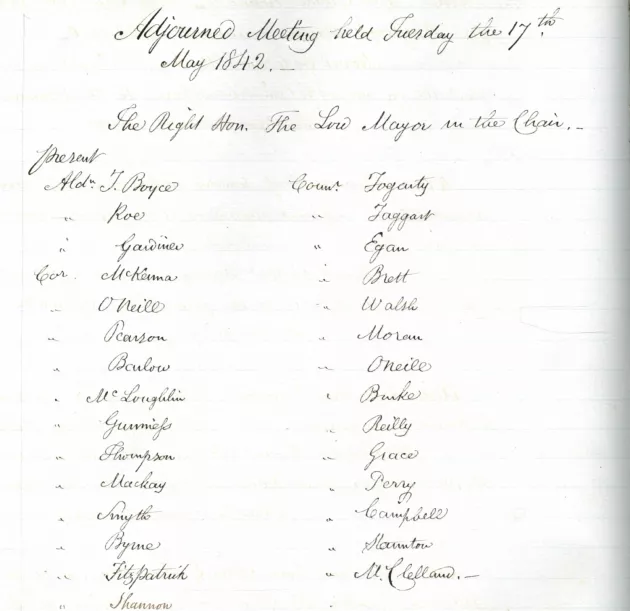 Adjourned Meeting held Tuesday the 17th.
May 1842. –
The Right Hon. The Lord Mayor in the Chair. –
present
Aldn. T. Boyce
" Roe
" Gardiner
Cor. McKenna
" ONeill
" Pearson
" Barlow
" Mc Loughlin
" Guinness
" Thompson
" Mackay
" Smyth
" Byrne
" Fitzpatrick
" Shannon
Counr. Fogarty
" Taggart
" Egan
" Brett
" Walsh
" Moran
" ONeile
" Burke
" Reilly
" Grace
" Perry
" Campbell
" Staunton
" Mc.Clelland. –
"